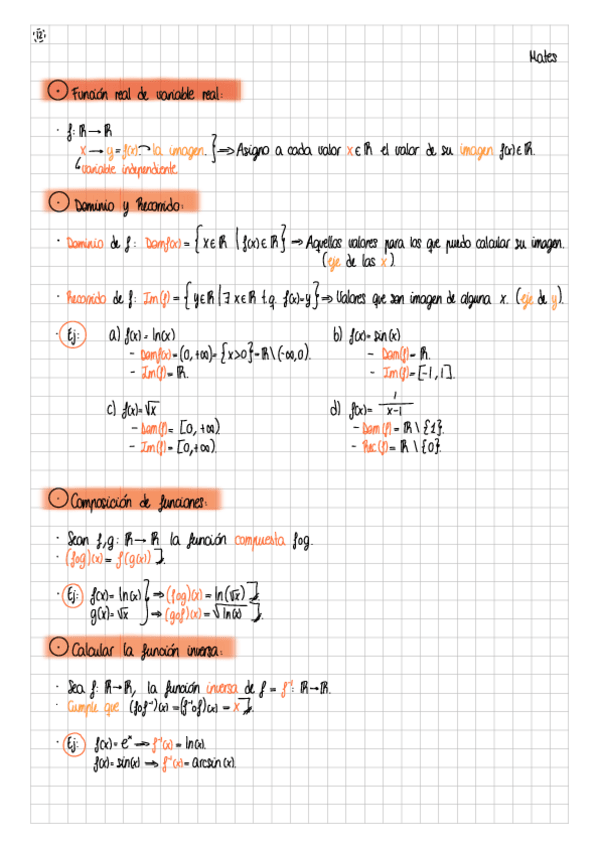 12
Mates
Función real de variable real:
· f: ℝ → ℝ
x → y = f(x) → la imagen. } ⇒ Asigno a cada valor x ∈ ℝ el valor de su imagen f(x) ∈ ℝ.
↳ variable independiente
Dominio y Recorrido:
· Dominio de f: Domf(x) = { x ∈ ℝ | f(x) ∈ ℝ } → Aquellos valores para los que puedo calcular su imagen.
(eje de las x).
· Recorrido de f: Im(f) = { y ∈ ℝ | ∃ x ∈ ℝ t.q. f(x)=y } ⇒ Valores que son imagen de alguna x. (eje de y).
· Ej: a) f(x) = ln(x) b) f(x) = sin(x)
- Domf(x) = (0, +∞) = { x>0 } = ℝ \ (-∞, 0). - Dom(f) = ℝ.
- Im(f) = ℝ. - Im(f) = [-1, 1].
c) f(x) = √x d) f(x) = 1/(x-1)
- Dom(f) = [0, +∞) - Dom(f) = ℝ \ {1}.
- Im(f) = [0, +∞). - Rec(f) = ℝ \ {0}.
Composición de funciones:
· Sean f, g: ℝ → ℝ la función compuesta fog.
· (fog)(x) = f(g(x)) ].
· Ej: f(x) = ln(x) } ⇒ (fog)(x) = ln(√x) ].
g(x) = √x } ⇒ (gof)(x) = √ln(x) ].
Calcular la función inversa:
· Sea f: ℝ → ℝ, la función inversa de f = f⁻¹: ℝ → ℝ.
· Cumple que (fof⁻¹)(x) = (f⁻¹of)(x) = x ].
· Ej: f(x) = eˣ → f⁻¹(x) = ln(x).
f(x) = sin(x) → f⁻¹(x) = arcsin(x).